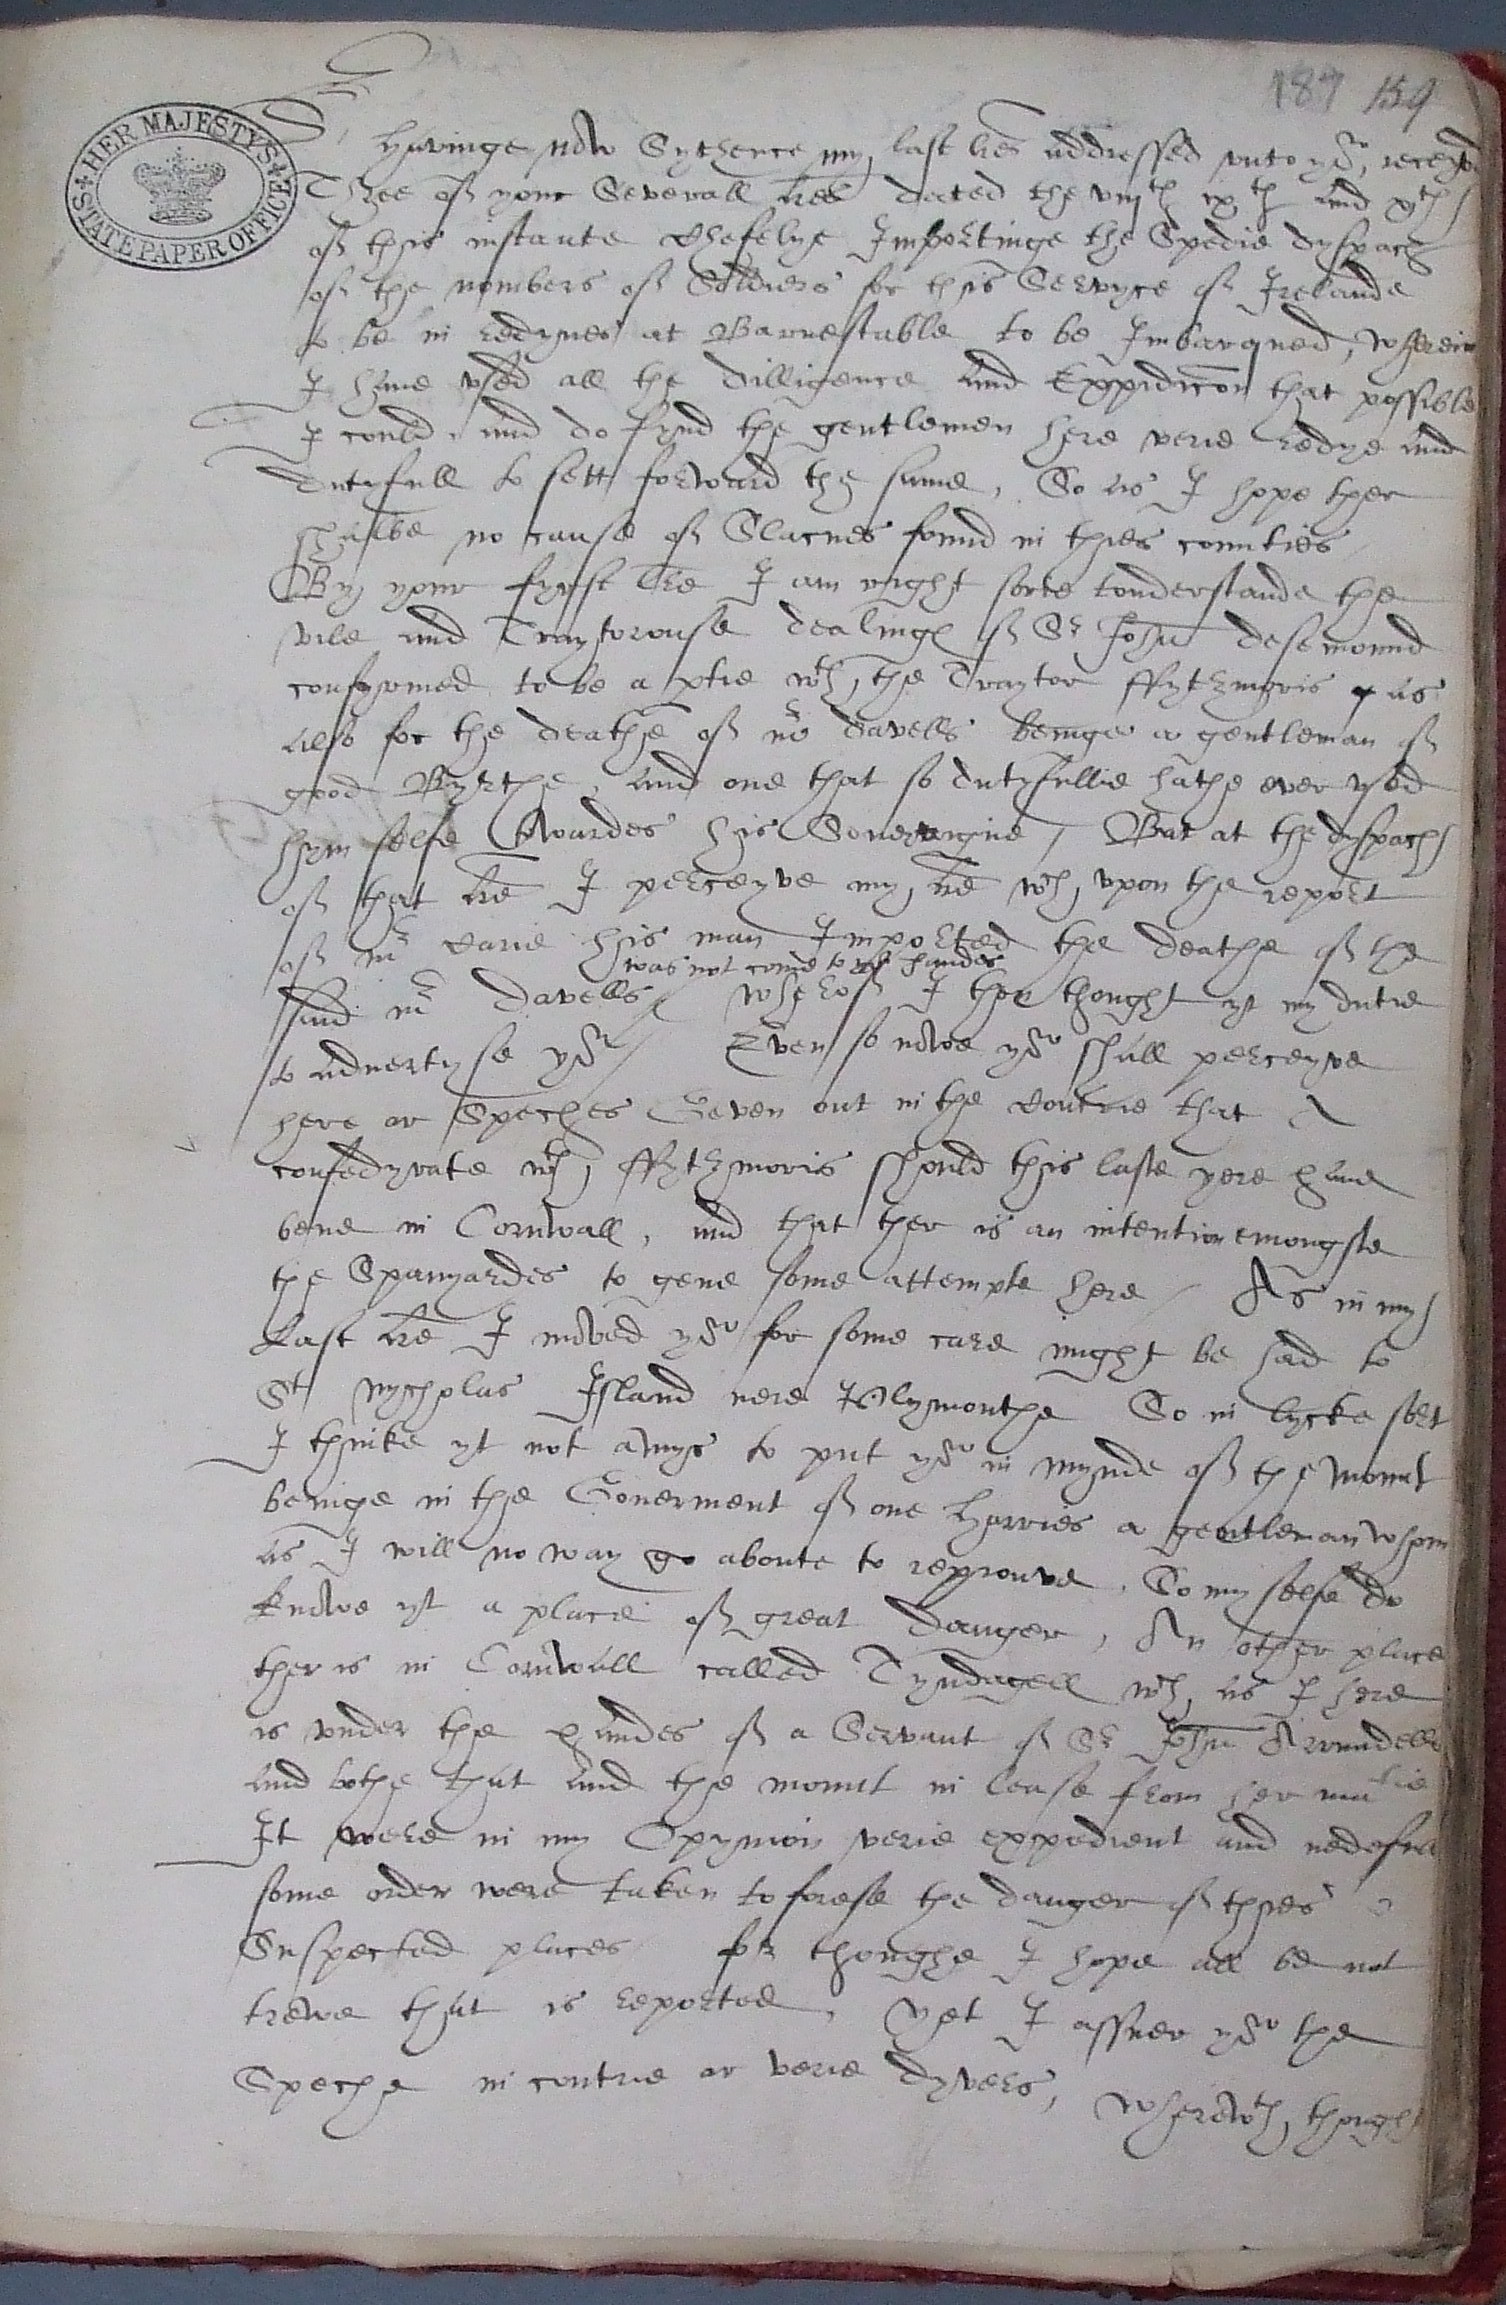 187 159
HER MAJESTYS STATE PAPER OFFICE
Sr, havinge now Sythence my last lres addressed vnto yor, receyvd
Three of your Severall lres dated the viijth ixth and xth
of this instante chefelye Importinge the Spedie dyspach
of the nombers of Soldiers for this Servyce of Irelande
to be in redynes at Barnestable to be Imbarqued, wherein
I have vsed all the dilligence and Expidicon that possible
I could, and do fynd the gentlemen here verie redye and
dutyfull to sett forward the same, So as I hope ther
shalbe no cause of Slacnes found in thies counties
By your fyrst lre I am right sorie tonderstande the
vile and Traytorouse dealing of Sr John desemound
confyrmed to be a ptie wth the Traytor ffytzmoris as
also for the deathe of mr davells beinge a gentleman of
good Byrthe, and one that so dutyfullie hathe ever vsed
hym selfe towardes his Soveraigne, But at the dyspach
of that lre I perceyve my lre wch vpon the report
of mr carie his man Imported the deathe of the
was not come to yor handes
said mr davells wherof I then thought yt my dutie
to advertyse yor Even so nowe yor shall perceyve
here ar Speches Geven out in the contrie that A
confedyrate wth ffytzmoris should this laste yere have
bene in Cornwall, and that ther is an intention emongste
the Spanyardes to geve some attempte here As in my
last lre I moved yor for some care might be had to
St nycholas Island nere Plymouthe So in lycke sort
I thinke yt not amys to put yor in mynde of the mount
beinge in the Goverment of one harries a gentleman whom
as I will no way go aboute to reprouve, So my selfe do
knowe yt a place of great danger, An other place
ther is in Cornwall called Tyndagell wch as I here
is vnder the handes of a Servant of Sr John Arundells
and bothe that and the mount in lease from her matie
It were in my Opynion verie expedient and nedefull
some order were taken to forese the danger of thies
Suspected places for thoughe I hope all be not
trewe that is reported, yet I assuer yor the
Speche in contrie ar verie dyvers, wherewth thought